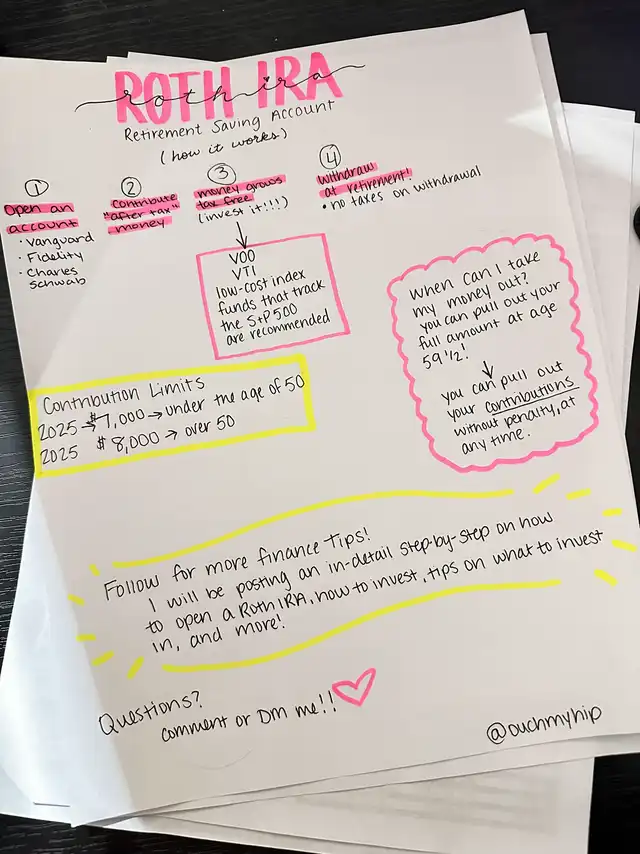 ROTH IRA
roth ira
Retirement Saving Account
(how it works)
①
Open an
account
· Vanguard
· Fidelity
· Charles
schwab
②
Contribute
"after tax"
money
③
money grows
tax free
(invest it!!!)
VOO
VTI
low-cost index
funds that track
the S+P 500
are recommended
④
Withdraw
at retirement!
· no taxes on withdrawal
When can I take
my money out?
you can pull out your
full amount at age
59 1/2!
you can pull out
your contributions
without penalty, at
any time.
Contribution Limits
2025 → $7,000 → under the age of 50
2025 $8,000 → over 50
Follow for more finance Tips!
I will be posting an in-detail step-by-step on how
to open a Roth IRA, how to invest, tips on what to invest
in, and more!
Questions?
comment or Dm me!!
@ouchmyhip